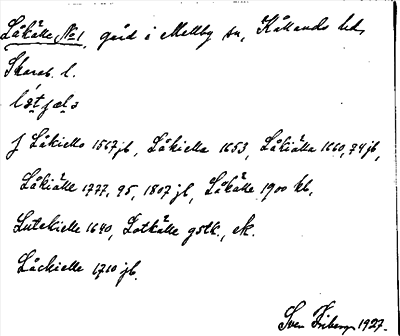 Låkälla No 1, gård i Mellby sn, Kållands hd,
Skarab. l.
lǻtʃælə
J Låkiella 1567 jb, Låkiella 1653, Låkiälla 1660, 74 jb,
Låkiälle 1777, 95, 1807 jb, Låkälle 1900 kb,
Lutekielle 1640, Lotkälle gstk., ek.
Låckielle 1710 jb.
Sven Friberg 1927.